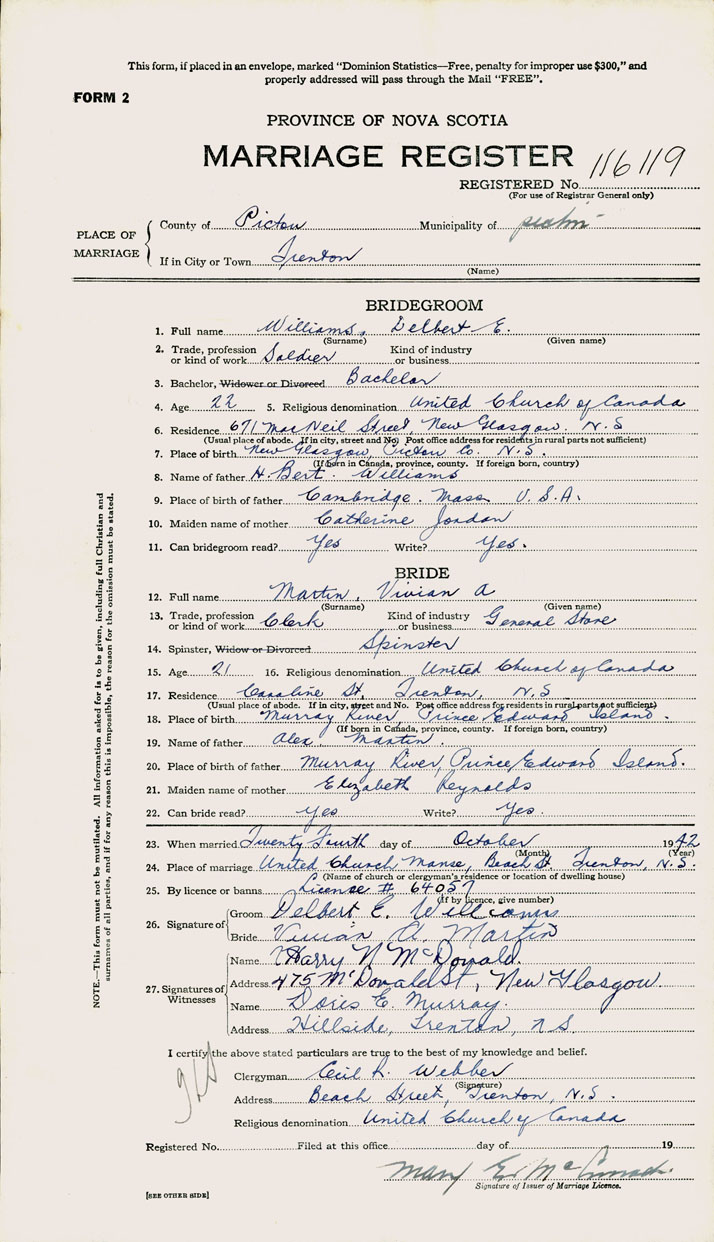 This form, if placed in an envelope, marked “Dominion Statistics—Free, penalty for improper use $300,” and
properly addressed will pass through the Mail “FREE”.
FORM 2
PROVINCE OF NOVA SCOTIA
MARRIAGE REGISTER 116119
REGISTERED No.
(For use of Registrar General only)
PLACE OF MARRIAGE
County of Pictou Municipality of
If in City or Town Trenton
(Name)
BRIDEGROOM
1. Full name Williams, Delbert E.
(Surname) (Given name)
2. Trade, profession or kind of work Soldier Kind of industry or business
3. Bachelor, Widower or Divorced Bachelor
4. Age 22 5. Religious denomination United Church of Canada
6. Residence 671 MacNeil Street, New Glasgow. N.S
(Usual place of abode. If in city, street and No. Post office address for residents in rural parts not sufficient)
7. Place of birth New Glasgow, Pictou Co. N.S.
(If born in Canada, province, county. If foreign born, country)
8. Name of father H. Bert. Williams
9. Place of birth of father Cambridge. Mass U.S.A.
10. Maiden name of mother Catherine Jordan
11. Can bridegroom read? Yes Write? Yes.
BRIDE
12. Full name Martin, Vivian A
(Surname) (Given name)
13. Trade, profession or kind of work Clerk Kind of industry or business General Store
14. Spinster, Widow or Divorced Spinster
15. Age 21 16. Religious denomination United Church of Canada
17. Residence Caroline St. Trenton, N.S
(Usual place of abode. If in city, street and No. Post office address for residents in rural parts not sufficient)
18. Place of birth Murray River, Prince Edward Island.
(If born in Canada, province, county. If foreign born, country)
19. Name of father Alex Martin.
20. Place of birth of father Murray River, Prince Edward Island.
21. Maiden name of mother Elizabeth Reynolds
22. Can bride read? Yes Write? Yes.
23. When married Twenty Fourth day of October 1942
(Month) (Year)
24. Place of marriage United Church Manse, Beach St. Trenton, N.S.
(Name of church or clergyman's residence or location of dwelling house)
25. By licence or banns License # 64057
(If by licence, give number)
26. Signature of
Groom Delbert E. Williams
Bride Vivian A. Martin
27. Signatures of Witnesses
Name Harry N McDonald.
Address 475 McDonald St, New Glasgow.
Name Doris E. Murray.
Address Hillside, Trenton, N.S.
I certify the above stated particulars are true to the best of my knowledge and belief.
Clergyman Cecil R. Webber
(Signature)
Address Beach Street, Trenton, N.S.
Religious denomination United Church of Canada
Registered No. Filed at this office day of 19
Mary E.
Signature of Issuer of Marriage Licence.
[SEE OTHER SIDE]
NOTE.—This form must not be mutilated. All information asked for is to be given, including full Christian and
surnames of all parties, and if for any reason this is impossible, the reason for the omission must be stated.